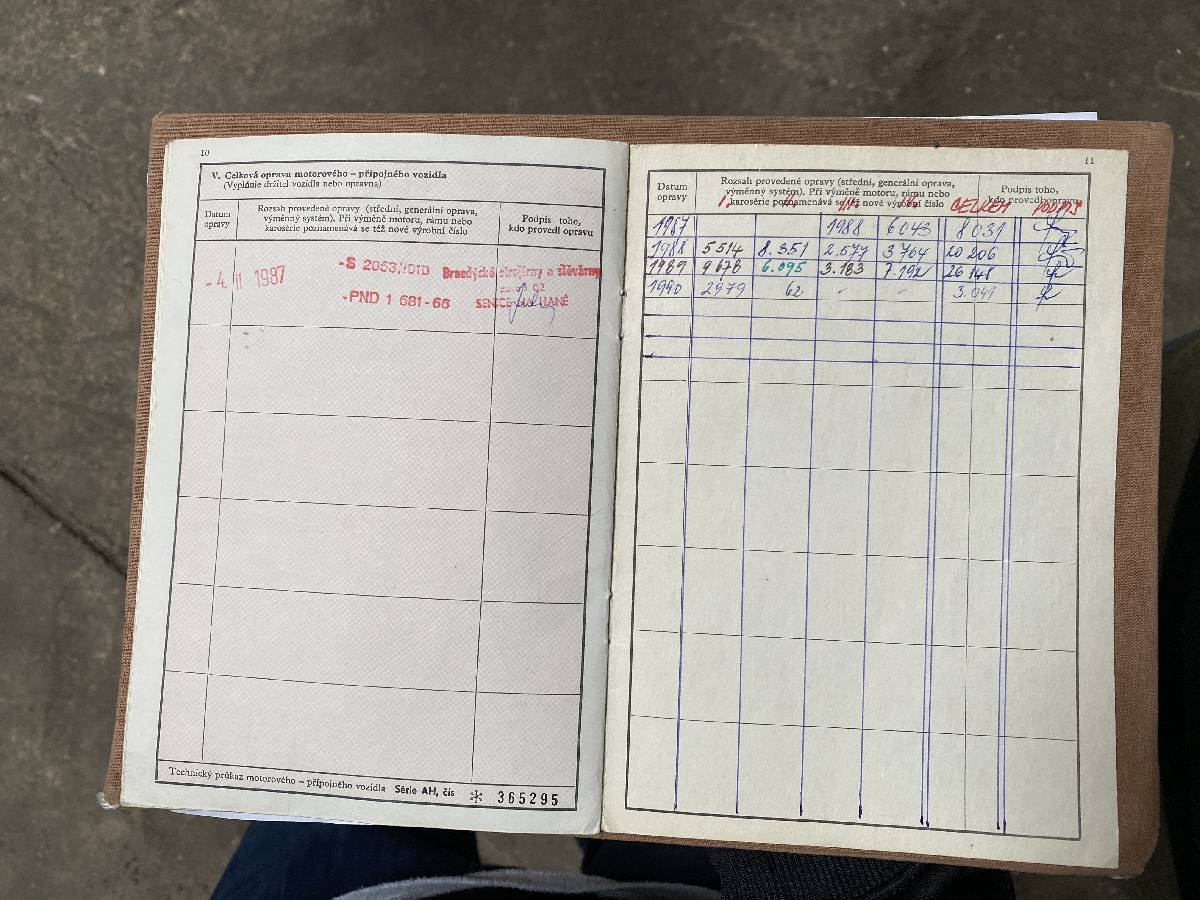 10
V. Celková oprava motorového – přípojného vozidla
(Vyplňuje držitel vozidla nebo opravna)
Datum opravy
Rozsah provedené opravy (střední, generální oprava,
výměnný systém). Při výměně motoru, rámu nebo
karosérie poznamenává se též nové výrobní číslo
Podpis toho,
kdo provedl opravu
-4. 11 1987
-S 2053/
Brandýské strojírny a slévárny
-PND 1 681-66
Technický průkaz motorového – přípojného vozidla Série AH, čís * 365295
11
Datum opravy
Rozsah provedené opravy (střední, generální oprava,
výměnný systém). Při výměně motoru, rámu nebo
karosérie poznamenává se též nové výrobní číslo
Podpis toho,
kdo provedl opravu
CELKEM PODPIS
1987 1988 6043 8031
1988 5514 8.351 2.577 3764 20 206
1989 9678 6.095 3.183 7.192 26 148
1990 2979 62 3.041